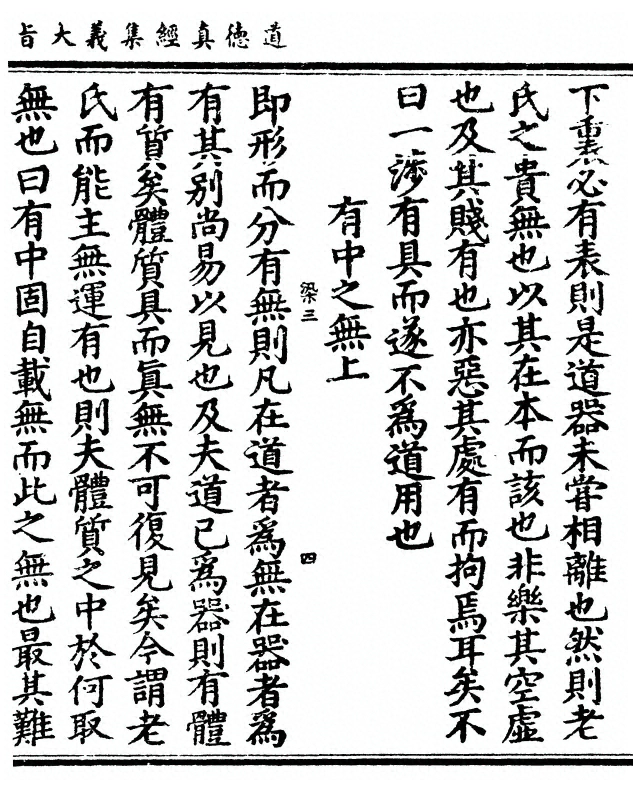 道德真經集義大旨
下重表必有表則是道器未甞相離也然則老
氏之貴無也以其在本而該也非樂其空虛
也及其賤有也亦惡其處有而拘焉耳矣不
曰一涉有具而遂不爲道用也
有中之無上
染三
四
即形而分有無則凡在道者爲無在器者爲
有其別尚易以見也及夫道已爲器則有體
有質矣體質具而眞無不可復見矣今謂老
氏而能主無運有也則夫體質之中於何取
無也曰有中固自載無而此之無也最其難